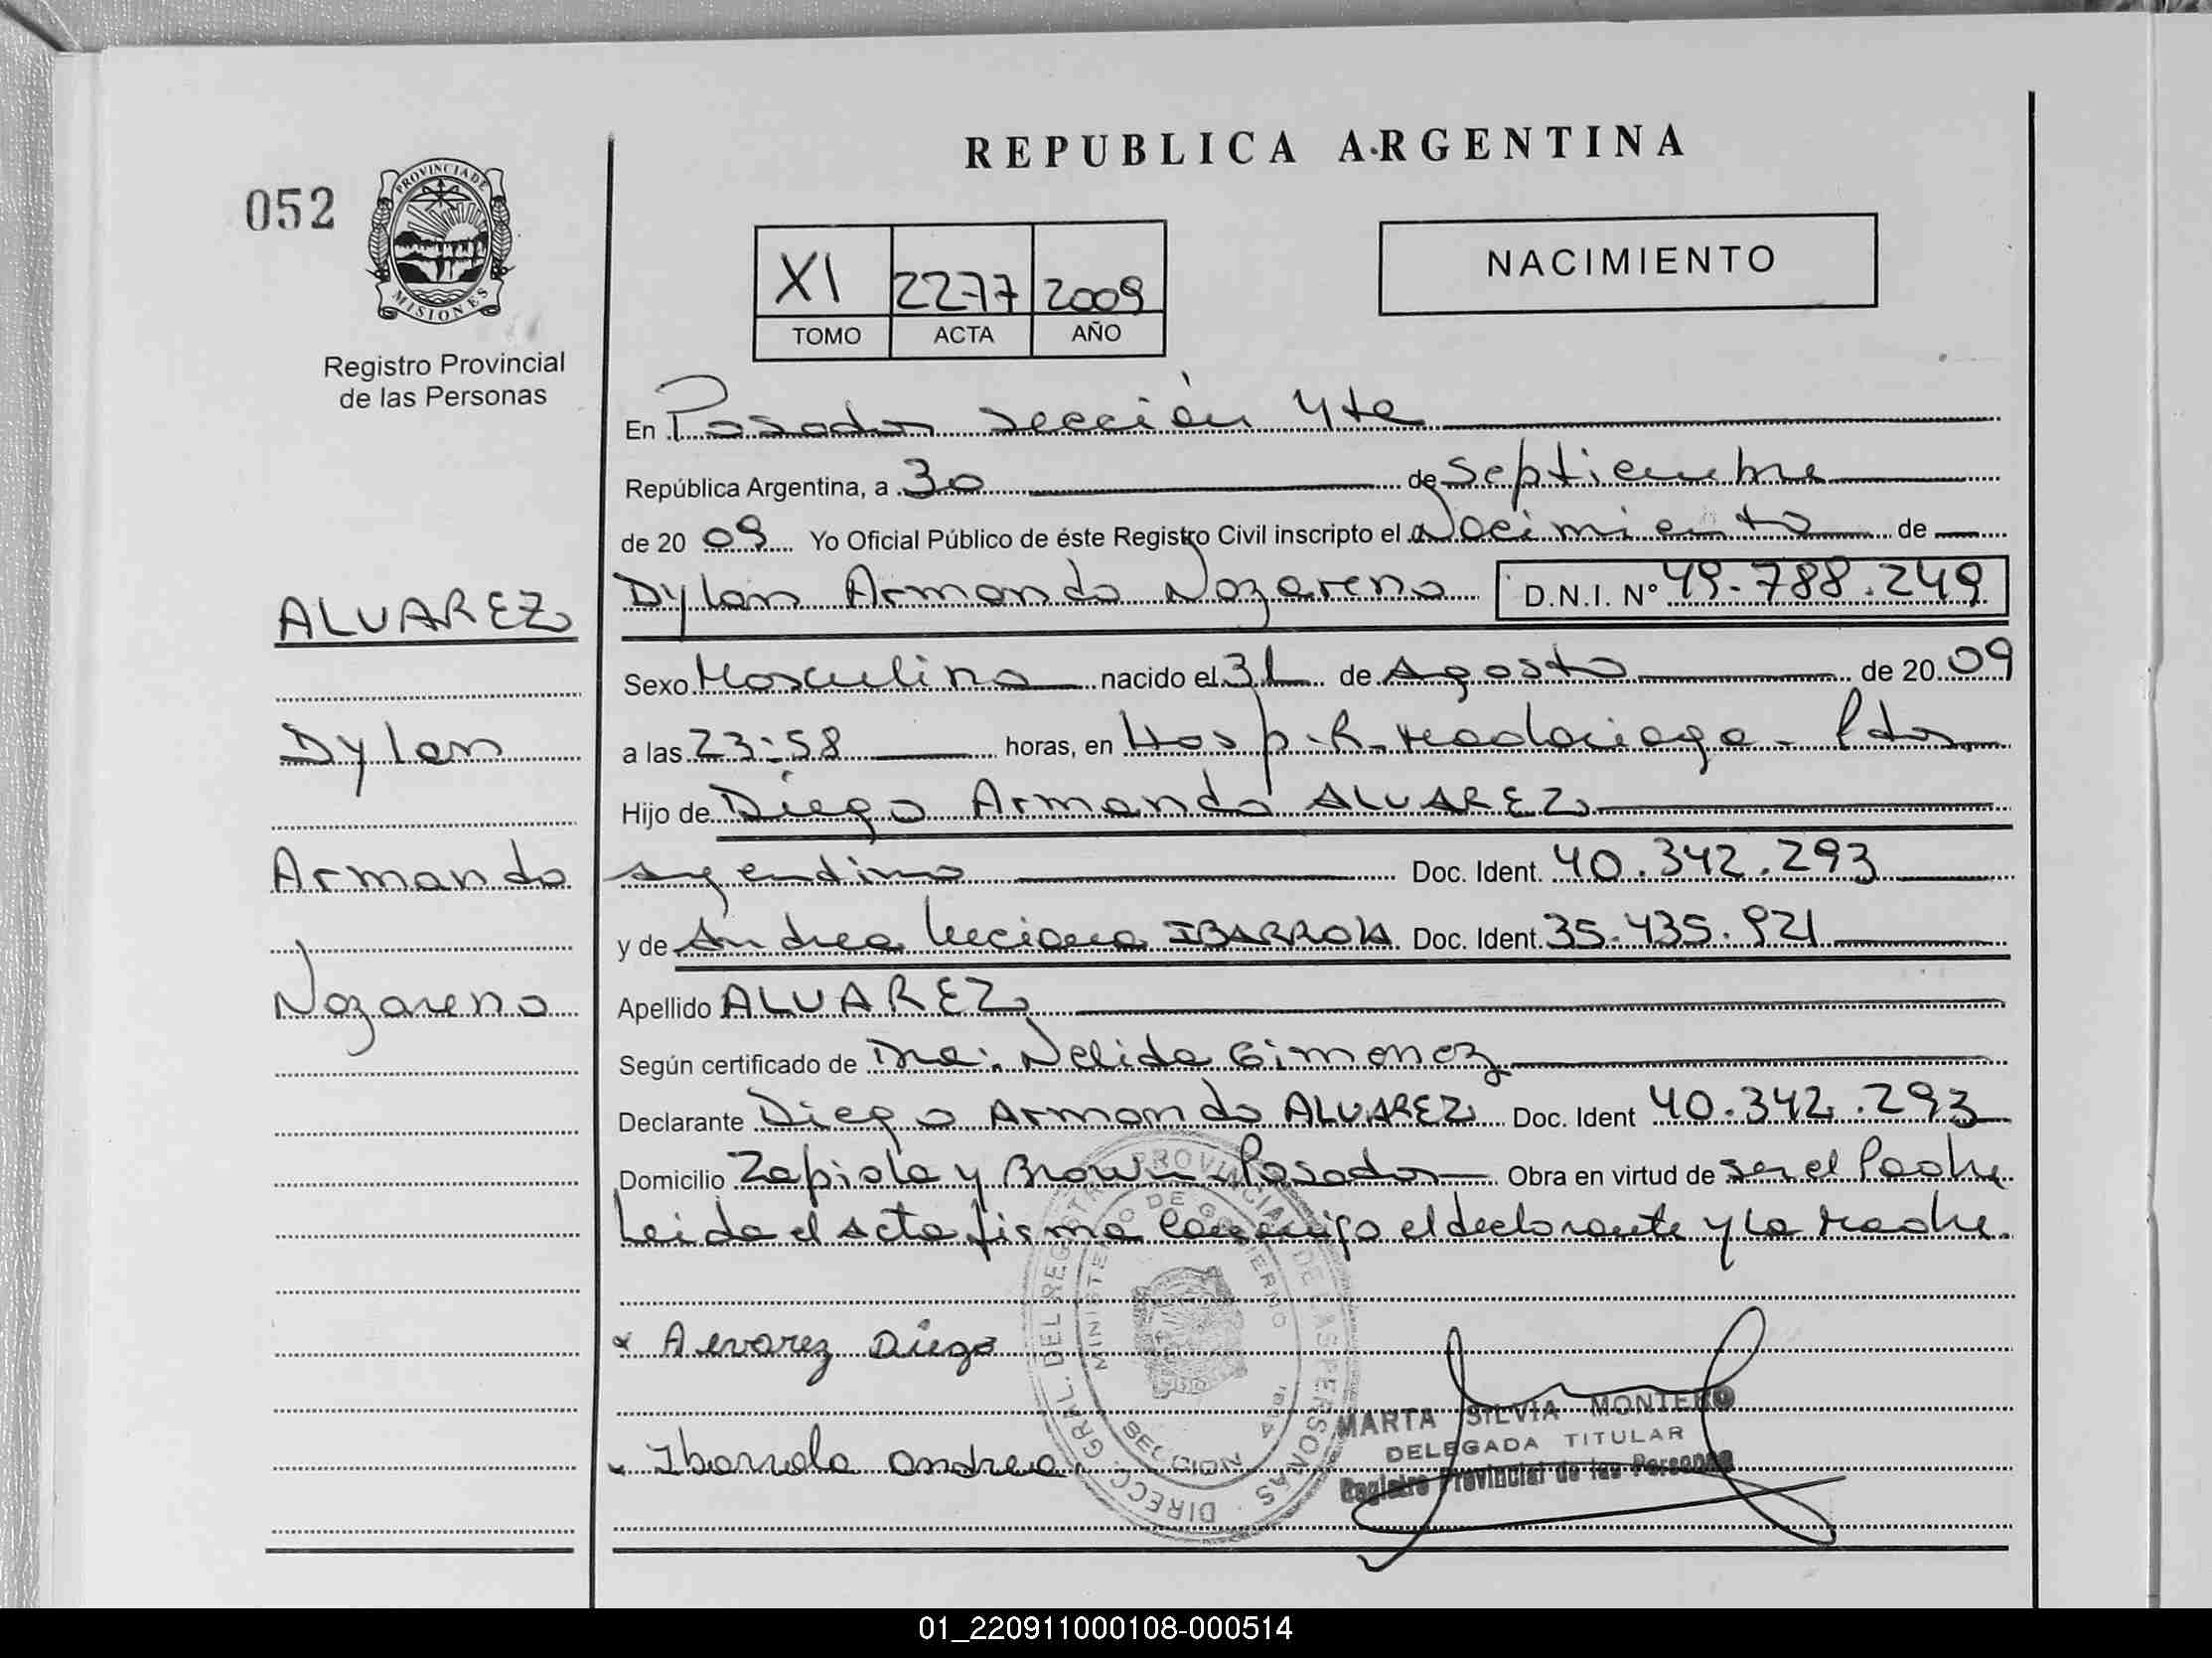 REPUBLICA ARGENTINA
052
PROVINCIA DE
MISIONES
Registro Provincial
de las Personas
XI 2277 2009
TOMO ACTA AÑO
NACIMIENTO
En Posadas sección 4ta
República Argentina, a 30 de Septiembre
de 2009 Yo Oficial Público de éste Registro Civil inscripto el Nacimiento de
Dylan Armando Nazareno D.N.I. Nº 49.788.249
Sexo Masculino nacido el 31 de Agosto de 2009
a las 23:58 horas, en Hosp. R. Madariaga - Pdas
Hijo de Diego Armando ALVAREZ
argentino Doc. Ident. 40.342.293
y de Andrea Luciana IBARROLA Doc. Ident. 35.435.921
Apellido ALVAREZ
Según certificado de Dra. Nelida Gimenez
Declarante Diego Armando ALVAREZ Doc. Ident 40.342.293
Domicilio Zapiola y Brown Posadas Obra en virtud de ser el Padre
Leida el acta firma conmigo el declarante y la Madre.
Alvarez Diego
Ibarrola andrea
ALVAREZ
Dylan
Armando
Nazareno
DIRECC. GRAL. DEL REGISTRO PROVINCIAL DE LAS PERSONAS
MINISTERIO DE GOBIERNO
SECCION 4
MARTA SILVIA MONTERO
DELEGADA TITULAR
Registro Provincial de las Personas
01_220911000108-000514